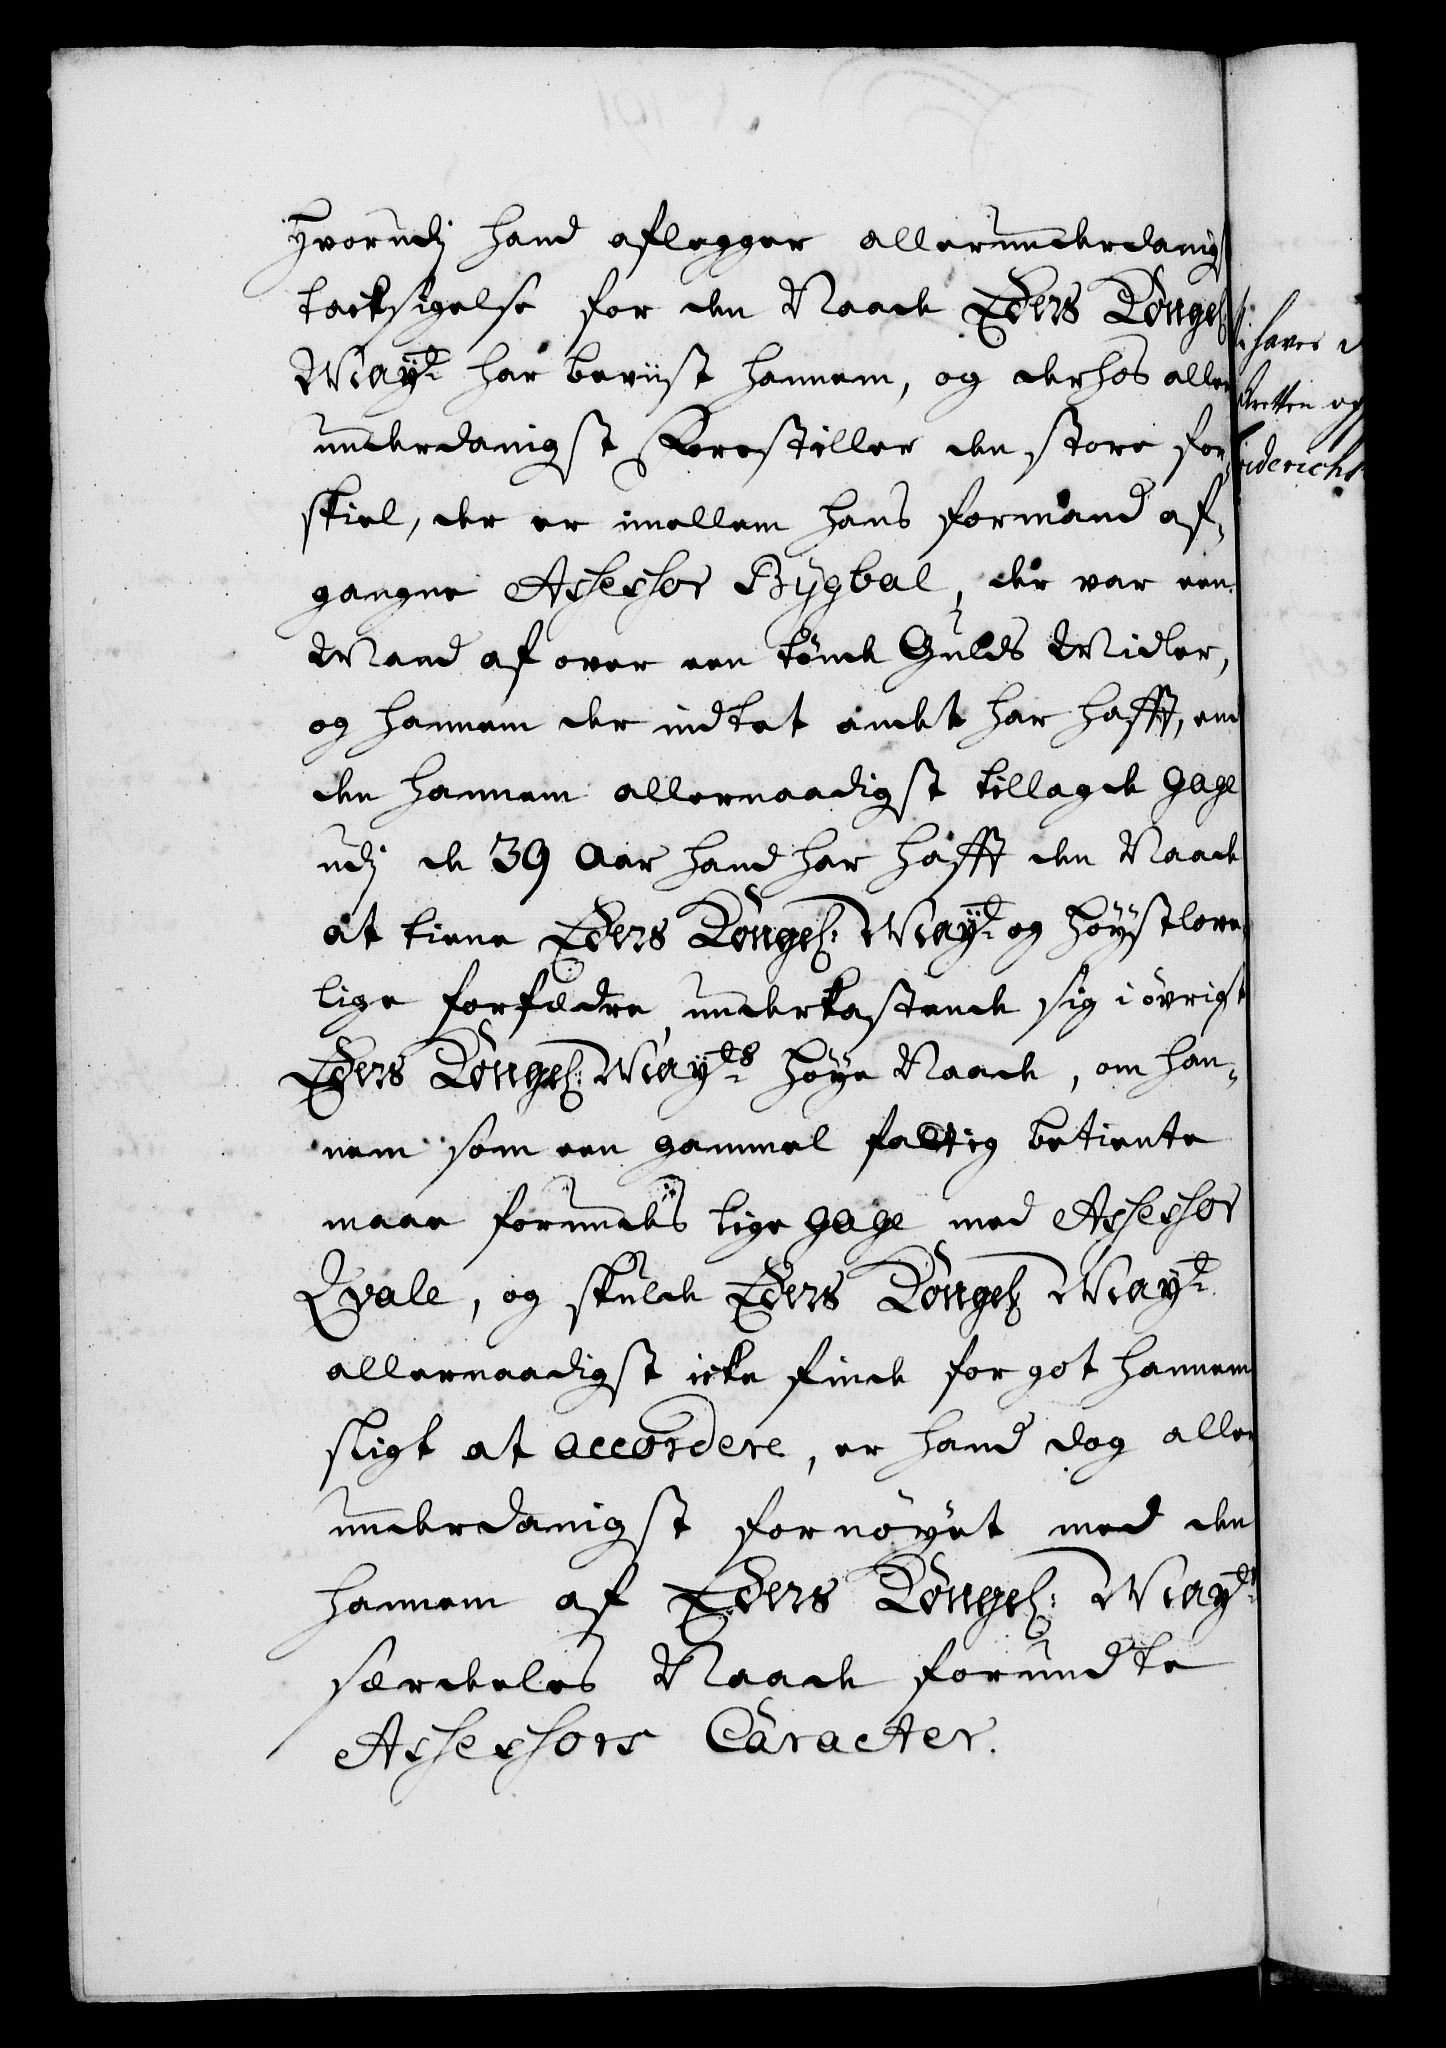 Hvorudj hand aflegger allerunderdanigst
tacksigelse for den Naade Eders Kongel:
May:t har beviist hannem, og derhos aller
underdanigst Forestiller den store for¬
skiel, der er imellem hans formand af¬
gangne Assessor Bygbal, der var een
Mand af over een tönde Gulds Midler,
og hannem der indtet andet har hafft, end
den hannem allernaadigst tillagde gage
udj de 39 Aar hand har hafft den Naade
at tiene Eders Kongel: May:t og Höystlove¬
lige forfædre, underkastende sig i övrigt
Eders Kongel: May:ts Höye Naade, om han¬
nem som een gammel fattig betiente
maae forundes lige gage med Assessor
Qvale, og skulde Eders Kongel: May:t
allernaadigst icke finde for got hannem
sligt at accordere, er hand dog aller
underdanigst fornöyet med den
hannem af Eders Kongel: May:ts
særdeles Naade forundte
Assessors Caracter.